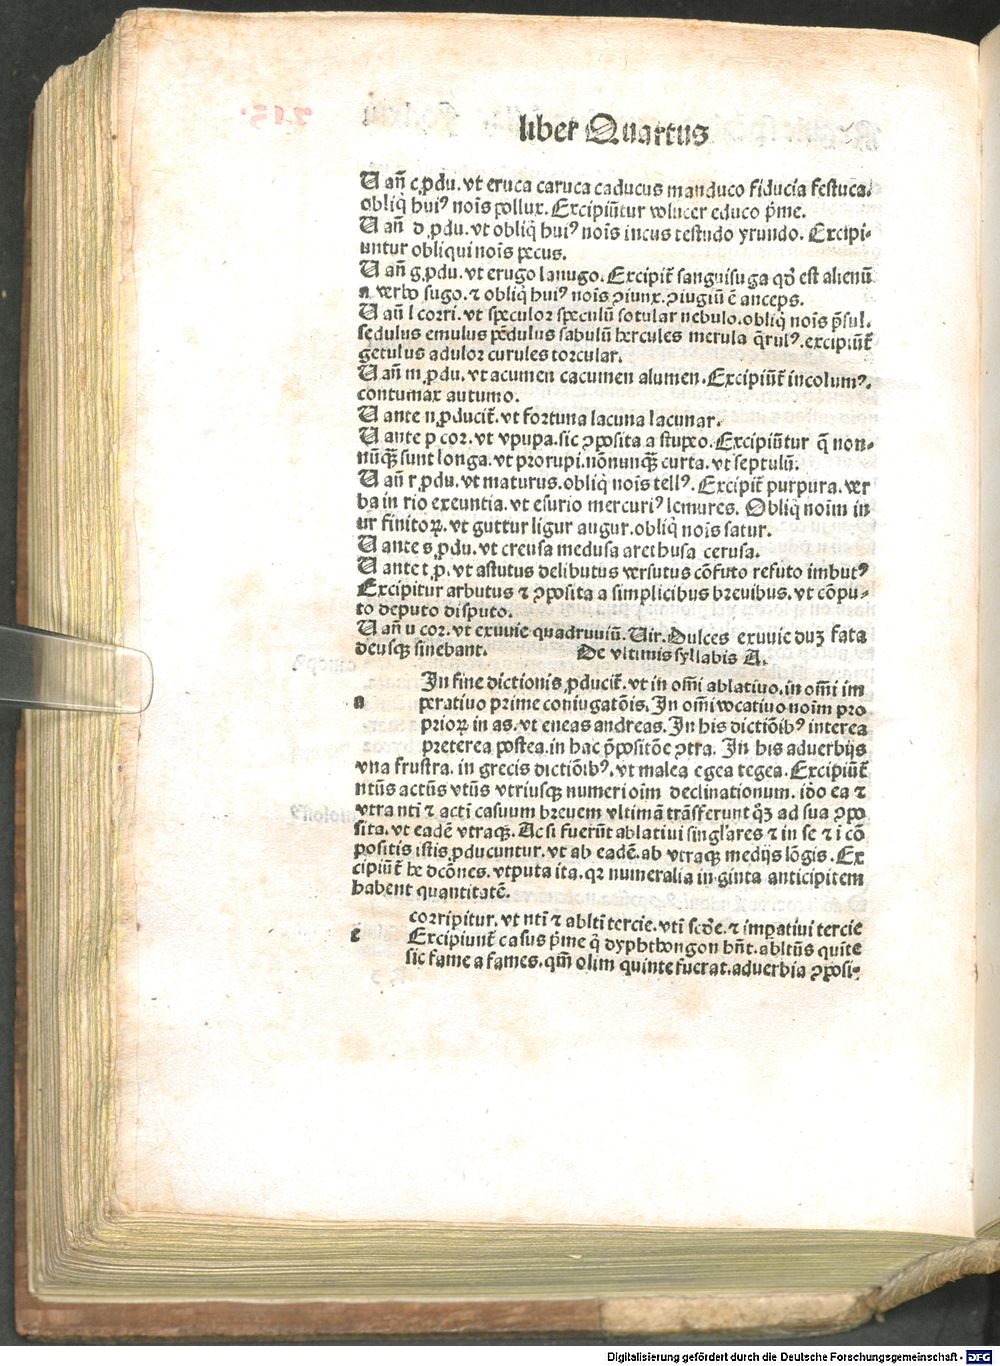 liber Quartus
U añ c ꝓdu. vt eruca caruca caducus manduco fiducia festuca.
obliq̇ huiꝰ nois̄ pollux. Excipiūtur volucer educo p̄me.
U añ d ꝓdu. vt obliq̇ huiꝰ nois̄ incus testudo yrundo. Excipi-
untur obliqui nois̄ pecus.
U añ g ꝓdu. vt erugo lanugo. Excipit̄ sanguisuga qđ est alienū
a verbo sugo. ⁊ obliq̇ huiꝰ nois̄ ꝯiunx. ꝯiugiū ē anceps.
U añ l corri. vt speculor speculū sotular nebulo. obliq̇ nois̄ p̄sul.
sedulus emulus pēdulus sabulū hercules merula q̄rulꝰ. excipiūt̄
getulus adulor curules torcular.
U añ m ꝓdu. vt acumen cacumen alumen. Excipiūt̄ incolumꝰ.
contumax autumo.
U ante n ꝓducit̄. vt fortuna lacuna lacunar.
U ante p cor. vt vpupa. sic ꝯposita a stupeo. Excipiūtur q̄ non-
nūꝙ̄ sunt longa. vt prorupi. nōnunꝙ̄ curta. vt septulū.
U añ r ꝓdu. vt maturus. obliq̇ nois̄ tellꝰ. Excipit̄ purpura. ver
ba in rio exeuntia. vt esurio mercuriꝰ lemures. Obliq̇ noim̄ in
ur finitoꝝ. vt guttur ligur augur. obliq̇ nois̄ satur.
U ante s ꝓdu. vt creusa medusa arethusa cerusa.
U ante t ꝓ. vt astutus delibutus versutus cōfuto refuto imbutꝰ
Excipitur arbutus ⁊ ꝯposita a simplicibus breuibus. vt cōpu-
to deputo disputo.
U añ u cor. vt exuuie quadruuiū. Uir. Dulces exuuie duꝫ fata
deusqꝫ sinebant. De vltimis syllabis A.
In fine dictionis ꝓducit̄. vt in om̄i ablatiuo. in om̄i im
a peratiuo prime coniugatōis. In om̄i vocatiuo noim̄ pro
prioꝝ in as. vt eneas andreas. In his dictiōibꝰ interea
preterea postea. in hac p̄positōe ꝯtra. In his aduerbijs
vna frustra. in grecis dictiōibꝰ. vt malea egea tegea. Excipiūt̄
ntiūs actiūs vtiūs vtriusqꝫ numeri oim̄ declinationum. ido ea ⁊
vtra nti ⁊ acti casuum breuem vltimā trāsferunt qꝫ ad sua ꝯpo
sita. vt eadē vtraqꝫ. Ac si fuerūt ablatiui singl'ares ⁊ in se ⁊ i cō
positis istis ꝓducuntur. vt ab eadē. ab vtraqꝫ medijs lōgis. Ex
cipiūt̄ he dcōnes. vtputa ita. qꝛ numeralia in ginta anticipitem
habent quantitatē.
corripitur. vt nti ⁊ ablti tercie. vti scđe. ⁊ impatiui tercie
e Excipiunt̄ casus p̄me q̇ dyphthongon hn̄t. abltiūs quite
sic fame a fames. qm̄ olim quinte fuerat. aduerbia ꝯposi-
Digitalisierung gefördert durch die Deutsche Forschungsgemeinschaft - DFG